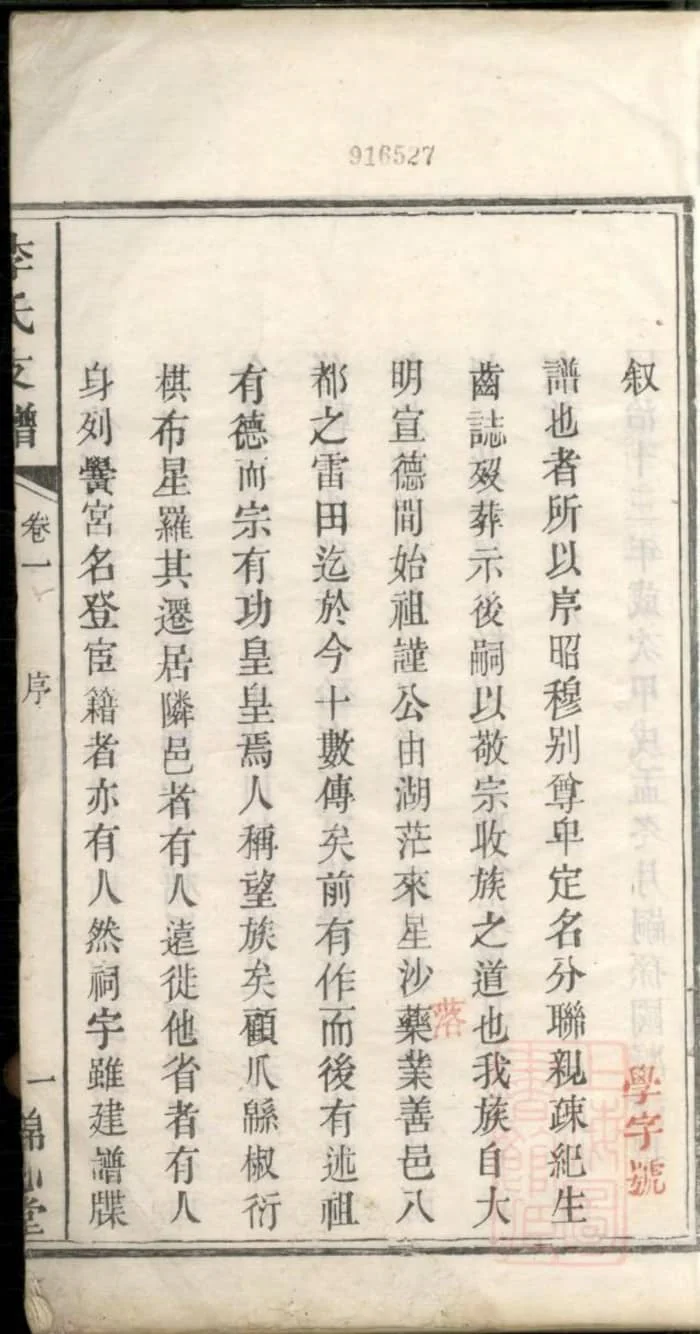 916527
叙
譜也者所以序昭穆別尊卑定名分聯親疎紀生
齒誌歿葬示後嗣以敬宗收族之道也我族自大
明宣德間始祖謹公由湖茫來星沙藥業善邑八
都之雷田迄於今十數傳矣前有作而後有述祖
有德而宗有功皇皇焉人稱望族矣顧瓜緜椒衍
棋布星羅其遷居隣邑者有人遠徙他省者有人
身列黌宮名登宦籍者亦有人然祠宇雖建譜牒
李氏支譜
卷一
序
一
錦山堂
學字號
落